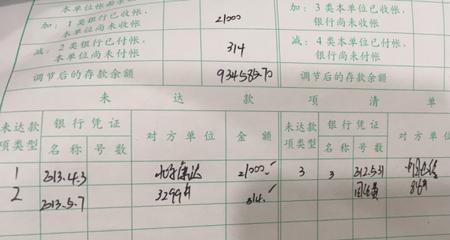 加：1 类银行已收帐，
本单位尚未收帐
21000
加：3 类本单位已收帐，
银行尚未收帐
减：2 类银行已付帐，
本单位尚未付帐
314
减：4 类本单位已付帐，
银行尚未付帐
调节后的存款余额
934585.70
调节后的存款余额
未 达 款 项 清 单
未达款
项类型
银 行 凭 证
名 称
号 数
对 方 单 位
金 额
未达款
项类型
银 行 凭 证
名 称
号 数
对 方 单 位
1
2013.4.3
21000.
3
3
2
2013.5.7
314.